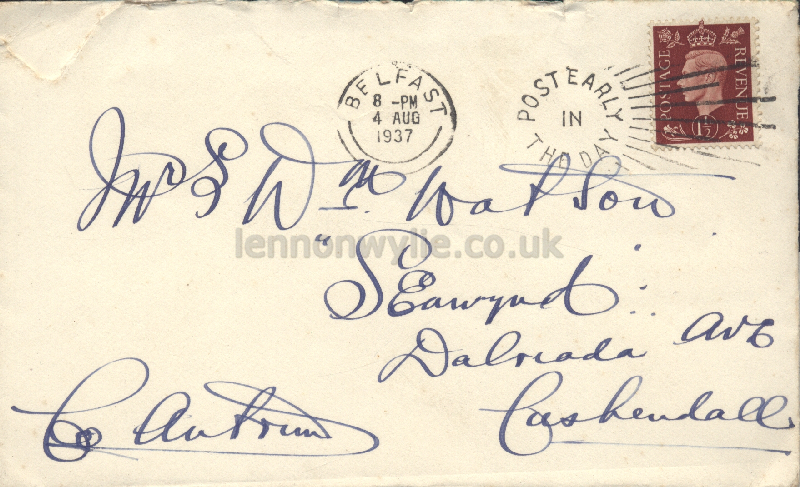 BELFAST
8 -PM
4 AUG
1937
POST EARLY
IN
THE DAY
POSTAGE
REVENUE
1½
Mrs Wm. Watson
lennonwylie.co.uk
"SEawynd"
Dalriada AvE
Cushendall
Co Antrim